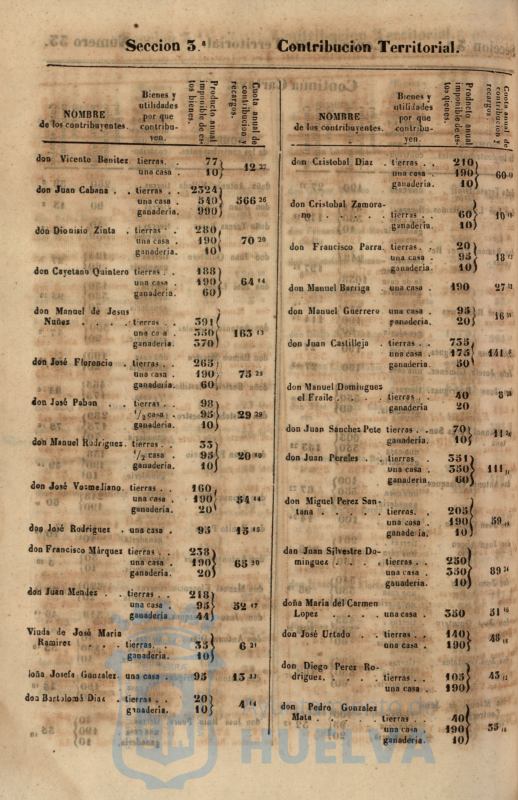 Seccion 3.ª Contribucion Territorial.
NOMBRE
de los contribuyentes.
Bienes y
utilidades
por que
contribu-
yen.
Producto anual
imponible de es-
tos bienes.
Cuota anual de
contribucion y
recargos.
don Vicente Benitez tierras. . 77
una casa . 10 12 27
don Juan Cabana . . tierras. . 2324
una casa . 540 566 26
ganaderia. 990
don Dionisio Zinta . tierras . . 280
una casa . 190 70 20
ganaderia. 10
don Cayetano Quintero tierras . . 188
una casa . 190 64 14
ganaderia. 60
don Manuel de Jesus
Nuñez . . . . tierras . . 391
una casa . 350 163 13
ganaderia. 370
don José Florencio . tierras . . 265
una casa . 190 75 23
ganaderia. 60
don José Pabon . . tierras . . 98
1/2 casa . 95 29 29
ganaderia. 10
don Manuel Rodriguez. tierras . . 33
1/2 casa . 95 20 10
ganaderia. 10
don José Vosmeliano. tierras . . 160
una casa . 190 54 14
ganaderia. 20
don José Rodriguez . una casa . 95 13
don Francisco Márquez tierras . . 238
una casa . 190 65 20
ganaderia. 20
don Juan Mendez . . tierras . . 218
una casa . 95 52 17
ganaderia 44
Viuda de José Maria
Ramirez . . . tierras. . 35
ganaderia. 10 6 21
doña Josefa Gonzalez. una casa . 95 13
don Bartolomé Dias . tierras . . 20
ganaderia. 10 4 14
NOMBRE
de los contribuyentes.
Bienes y
utilidades
por que
contribu-
yen.
Producto anual
imponible de es-
tos bienes.
Cuota anual de
contribucion y
recargos.
don Cristobal Diaz . tierras . . 210
una casa . 190 60
ganaderia. 10
don Cristobal Zamora-
no . . . . . tierras . . 60 10
ganaderia. 10
don Francisco Parra. tierras. . 20
una casa . 95 18
ganaderia. 10
don Manuel Barriga una casa . 190 27
don Manuel Guerrero una casa . 95 16
ganaderia. 20
don Juan Castilleja . tierras . . 735
una casa . 175 141
ganaderia. 50
don Manuel Dominguez
el Fraile . . . . tierras . . 40 8
ganaderia 20
don Juan Sanchez Pete tierras . . 70 11
ganaderia. 10
don Juan Pereles . . tierras . . 351
una casa . 350 111
ganaderia. 60
don Miguel Perez San-
tana . . . . . tierras. . 205
una casa . 190 59
ganaderia. 10
don Juan Silvestre Do-
minguez . . . . tierras . . 250
una casa . 350 89
ganaderia. 10
doña Maria del Carmen
Lopez . . . . una casa . 350 51
don José Urtado . . tierras . . 140 48
una casa . 190
don Diego Perez Ro-
driguez. . . . . tierras . . 105 43
una casa . 190
don Pedro Gonzalez
Mata . . . . . tierras . . 40
una casa . 190 35
ganaderia. 10
HUELVA